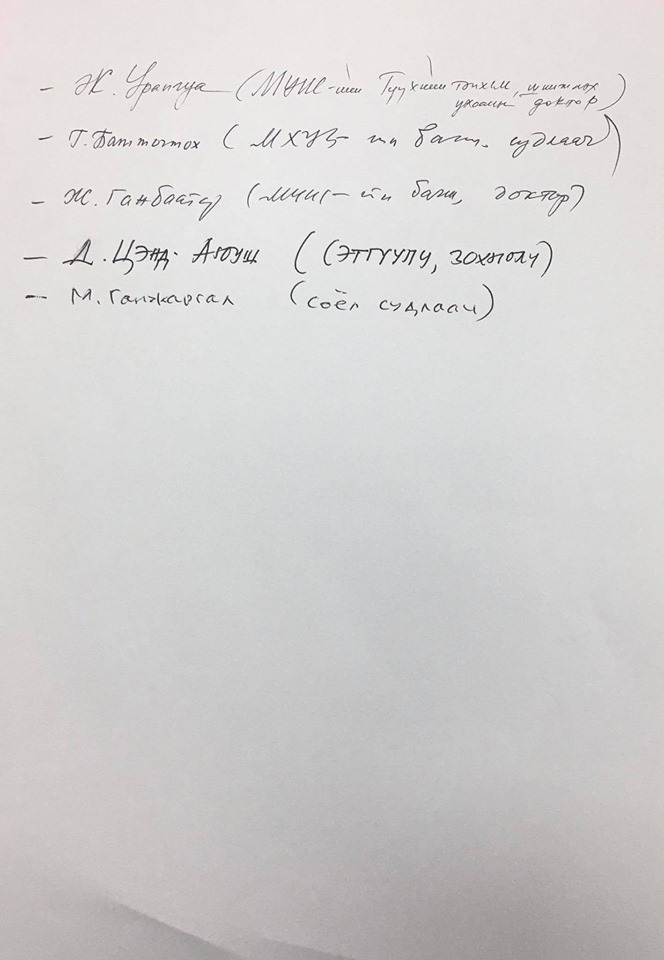 - Ж. Урангуа (МУИС-ийн Түүхийн тэнхим, шинжлэх
ухааны доктор)
- Г. Баттогтох ( МХУЗ- ын багш. судлаач)
- Ж. Ганбаатар (МУИС-ийн багш, доктор)
- Д. Цэнд-Аюуш (сэтгүүлч, зохиолч)
- М. Ганжаргал (соёл судлаач)